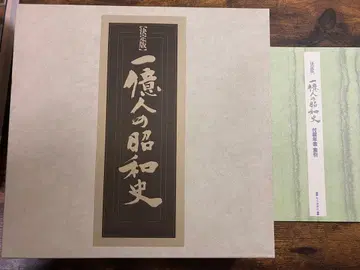 【決定版】
一億人の昭和史
決定版
一億人の昭和史